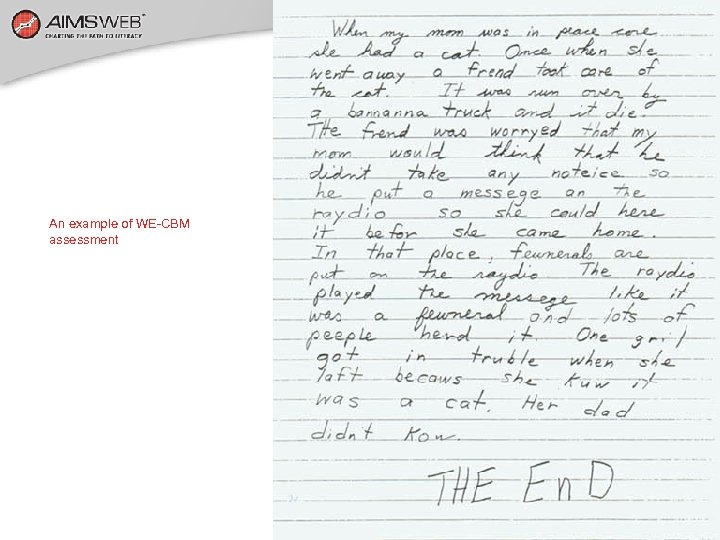 AIMSWEB
CHARTING THE PATH TO LITERACY
An example of WE-CBM
assessment
When my mom was in peace core
she had a cat. Once when she
went away a frend took care of
the cat. It was run over by
a bannanna truck and it die.
The frend was worryed that my
mom would think that he
didn't take any noteice so
he put a messege an the
raydio so she could here
it befor she came home.
In that place, fewnerals are
put on the raydio. The raydio
played the messege like it
was a fewneral and lots of
peeple herd it. One gril
got in truble when she
laft becaws she kuw it
was a cat. Her dad
didnt kow.
THE EnD